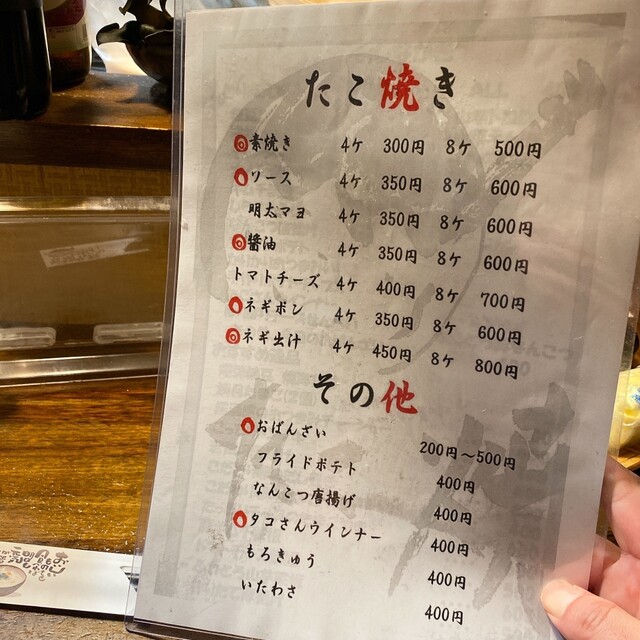 たこ焼き
素焼き 4ケ 300円 8ケ 500円
ソース 4ケ 350円 8ケ 600円
明太マヨ 4ケ 350円 8ケ 600円
醤油 4ケ 350円 8ケ 600円
トマトチーズ 4ケ 400円 8ケ 700円
ネギポン 4ケ 350円 8ケ 600円
ネギ出汁 4ケ 450円 8ケ 800円
その他
おばんざい 200円〜500円
フライドポテト 400円
なんこつ唐揚げ 400円
タコさんウインナー 400円
もろきゅう 400円
いたわさ 400円